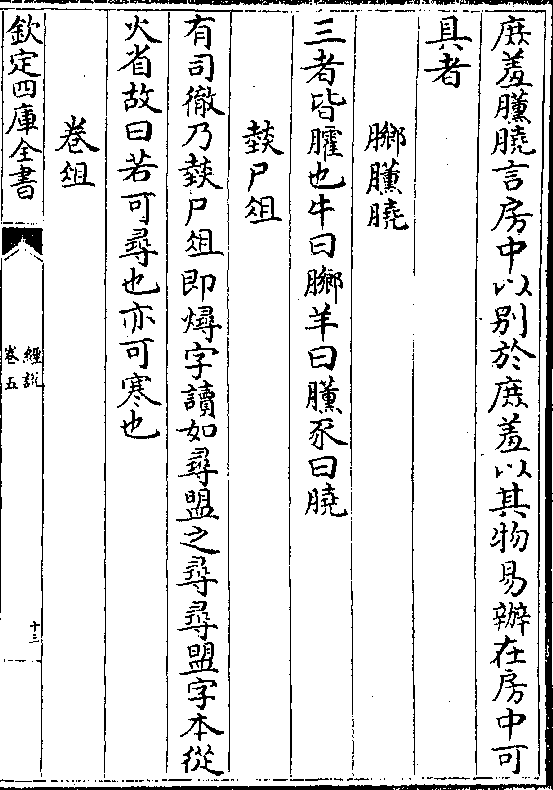 庶羞臐膮言房中以别於庶羞以其物易辦在房中可
具者
膷臐膮
三者皆臛也牛曰膷羊曰臐豕曰膮
燅尸俎
有司徹乃燅尸俎即燖字讀如尋盟之尋尋盟字本從
火省故曰若可尋也亦可寒也
卷俎
欽定四庫全書
經説
卷五
十三